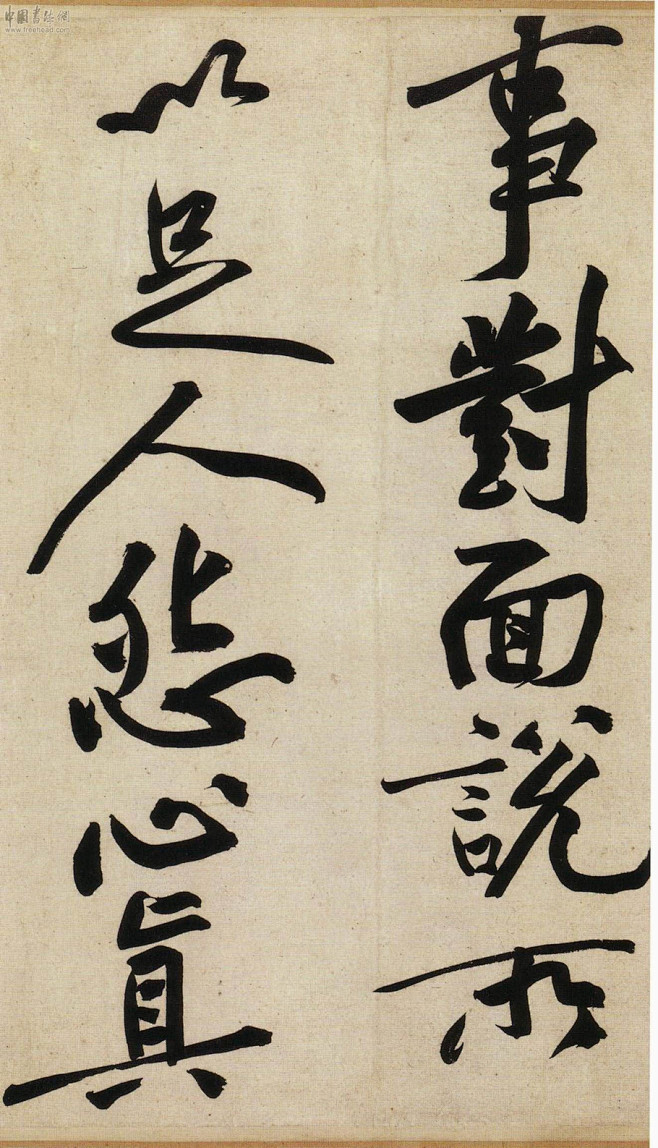 中國書法網
www.freehead.com
事對面說所
以足人怨心真